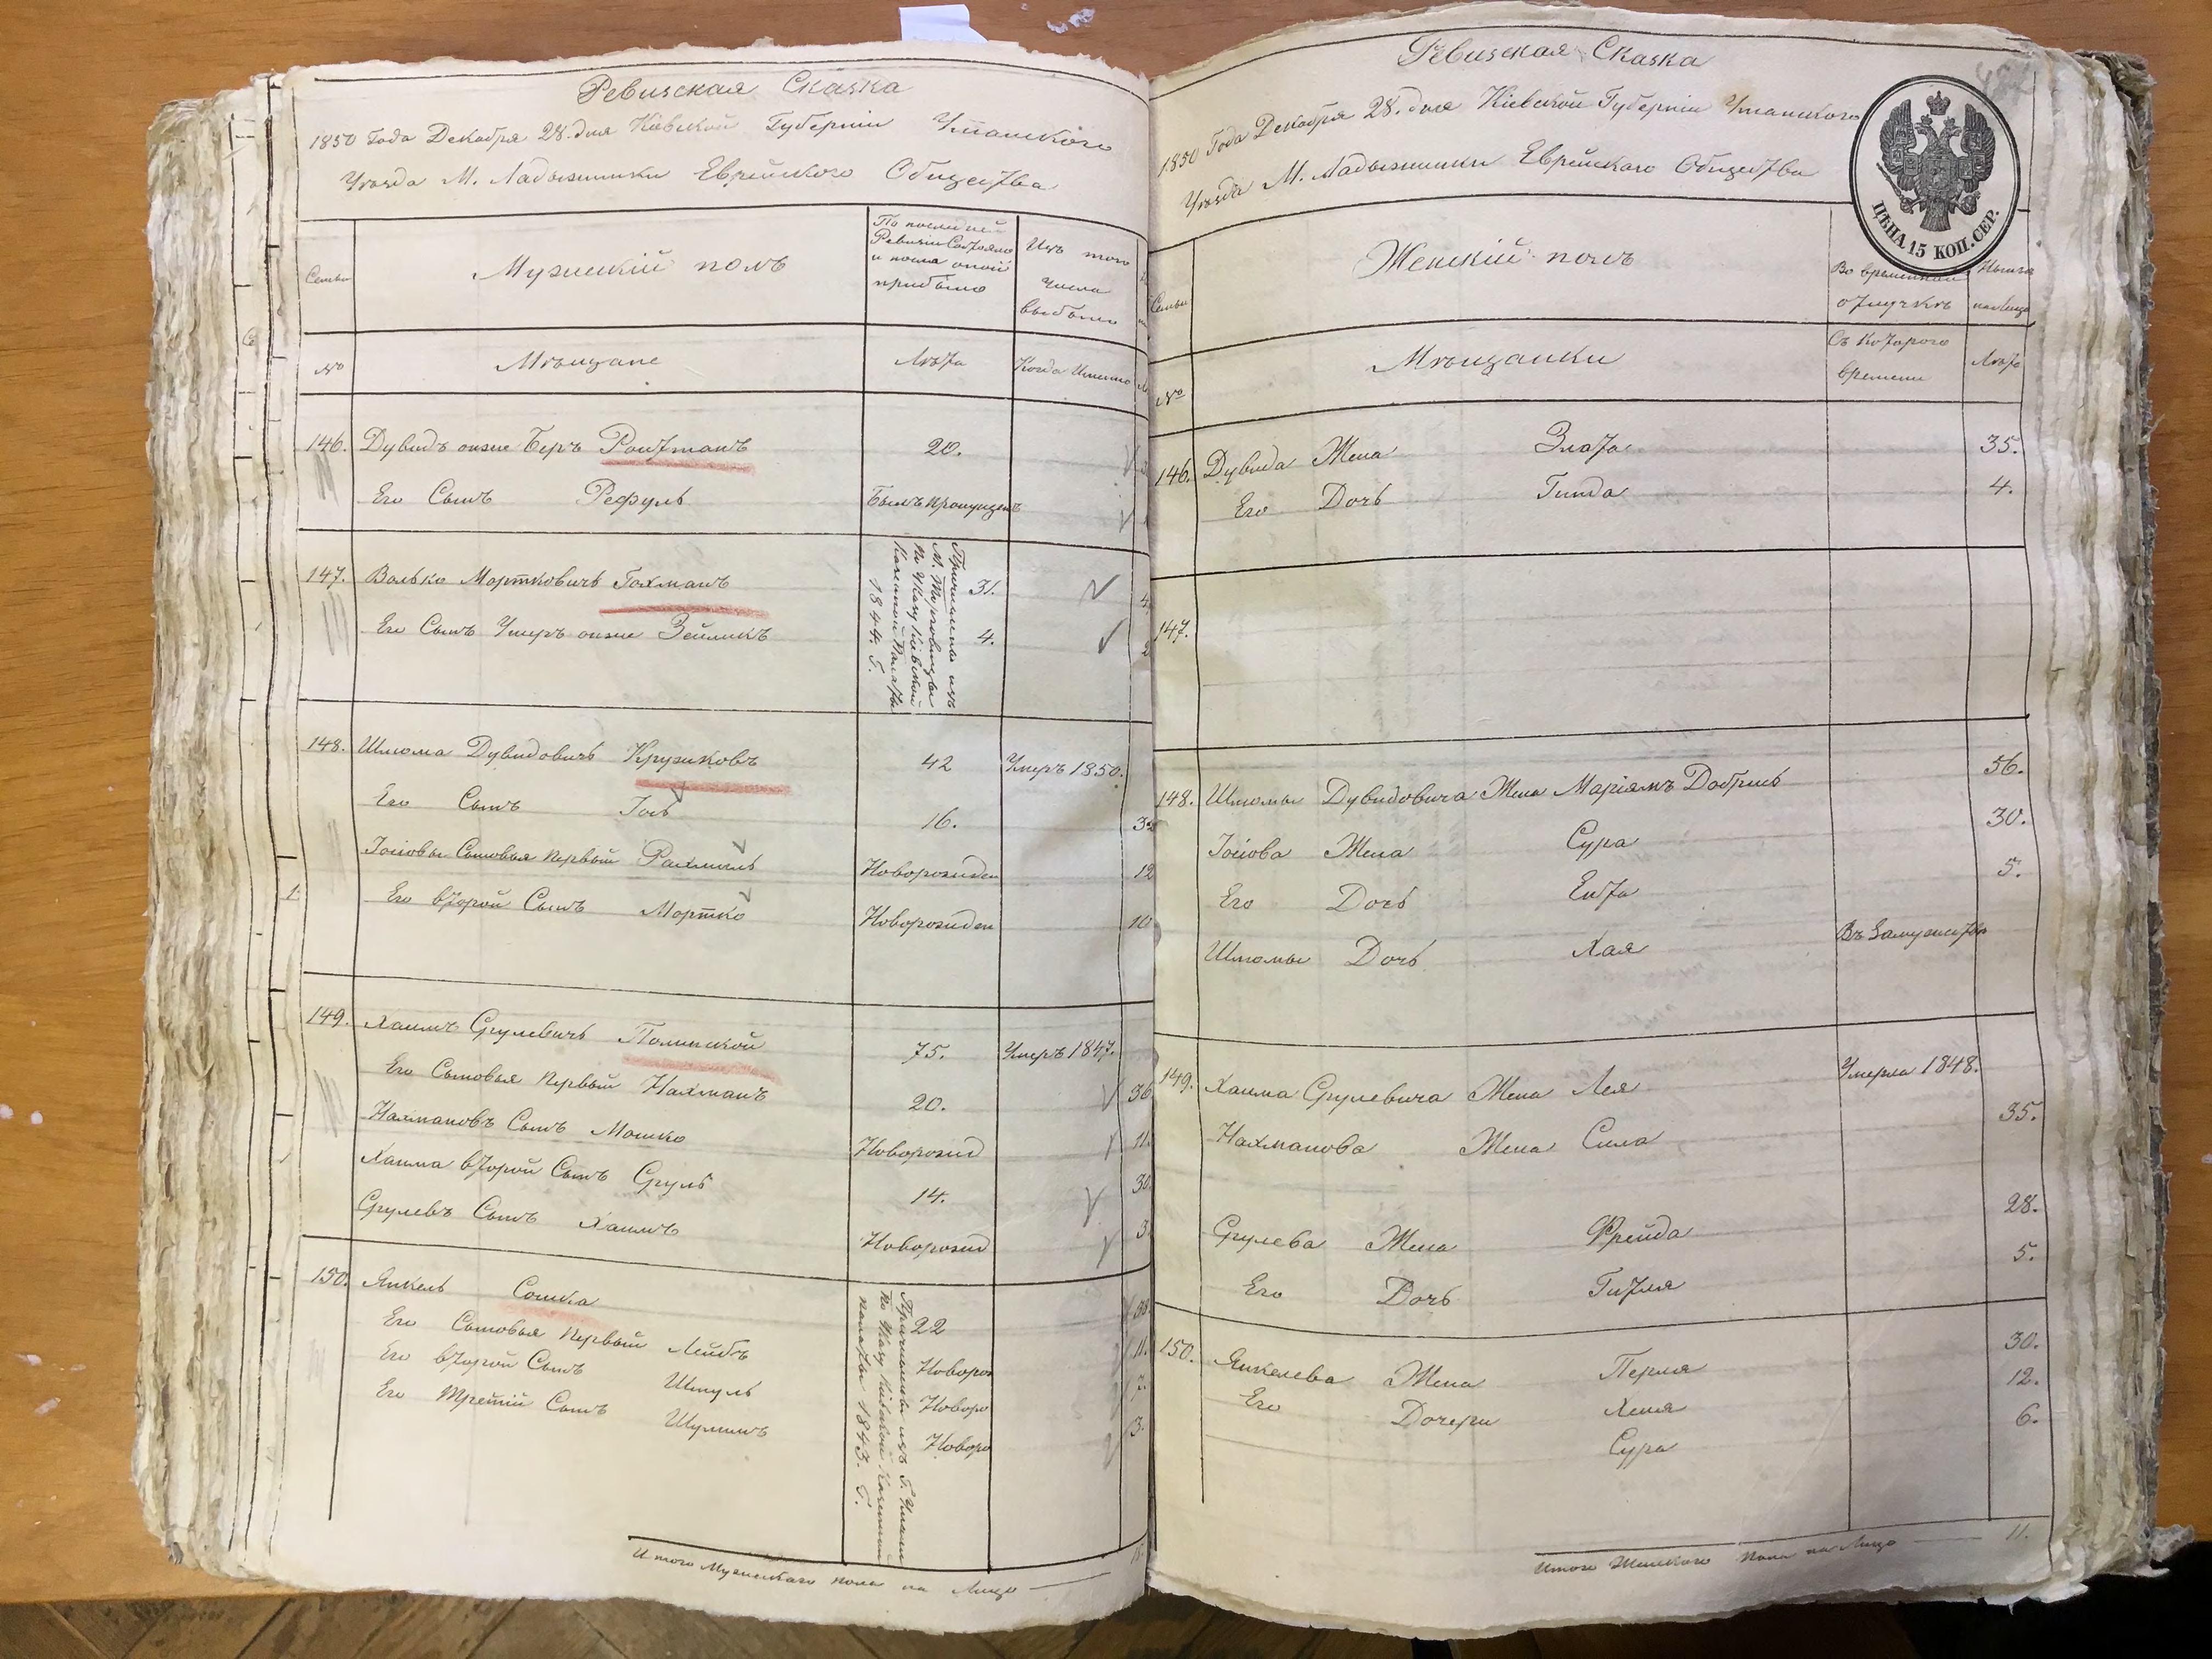 Ревизская Сказка
1850 Года Декабря 28. дня Кіевской Губерніи Уманскаго
Уѣзда М. Ладыжинки Еврейскаго Общества
Семьи
Мужескій полъ
По последней
Ревизіи Состояло
и после оной
прибыло
Изъ того
числа
выбыло
№
Мѣщане
Лѣта
Когда Именно
146. Дувидъ онже Беръ Ройтманъ 20.
Его Сынъ Рефуль Былъ пропущенъ
147. Волько Мортковичъ Гохманъ 31.
Его Сынъ Умеръ онже Зейликъ 4.
Причислены изъ
М. Торговицы
по Указу Кіевской
Казенной Палаты
1844. Г.
148. Шлома Дувидовичъ Кружковъ 42 Умеръ 1850.
Его Сынъ Іосъ 16.
Іосіовы Сыновья Первый Рахмиль Новорожден 12
Его второй Сынъ Мортко Новорожден 10
149. Хаимъ Срулевичъ Полинской 75. Умеръ 1847.
Его Сыновья Первый Нахманъ 20. 36
Нахмановъ Сынъ Мошко Новорожд 11.
Хаима второй Сынъ Сруль 14. 30.
Срулевъ Сынъ Хаимъ Новорожд 3.
150. Янкель Сошка 22
Его Сыновья Первый Лейбъ Новорож 11.
Его второй Сынъ Шмуль Новоро 7.
Его Третій Сынъ Шулимъ Новоро 3.
Причислены изъ Г. Умани
по Указу Кіевской Казенной
палаты 1843. Г.
Итого Мужескаго пола на Лицо
Ревизская Сказка
1850 Года Декабря 28. дня Кіевской Губерніи Уманскаго
Уѣзда М. Ладыжинки Еврейскаго Общества
ЦѢНА 15 КОП. СЕР.
Семьи
Женскій полъ
Во временной
отлучкѣ
Ныне
на лицо
№
Мѣщанки
Съ Котораго
времени
Лѣта
146. Дувида Жена Злота 35.
Его Дочь Гинда 4.
147.
148. Шломы Дувидовича Жена Маріямъ Добришъ 56.
Іосіова Жена Сура 30.
Его Дочь Ента 5.
Шломы Дочь Хая Въ Замужествѣ
149. Хаима Срулевича Жена Лея Умерла 1848.
Нахманова Жена Сила 35.
Срулева Жена Фрейда 28.
Его Дочь Гитля 5.
150. Янкелева Жена Перля 30.
Его Дочери Хена 12.
Сура 6.
Итого Женскаго пола на Лицо 11.